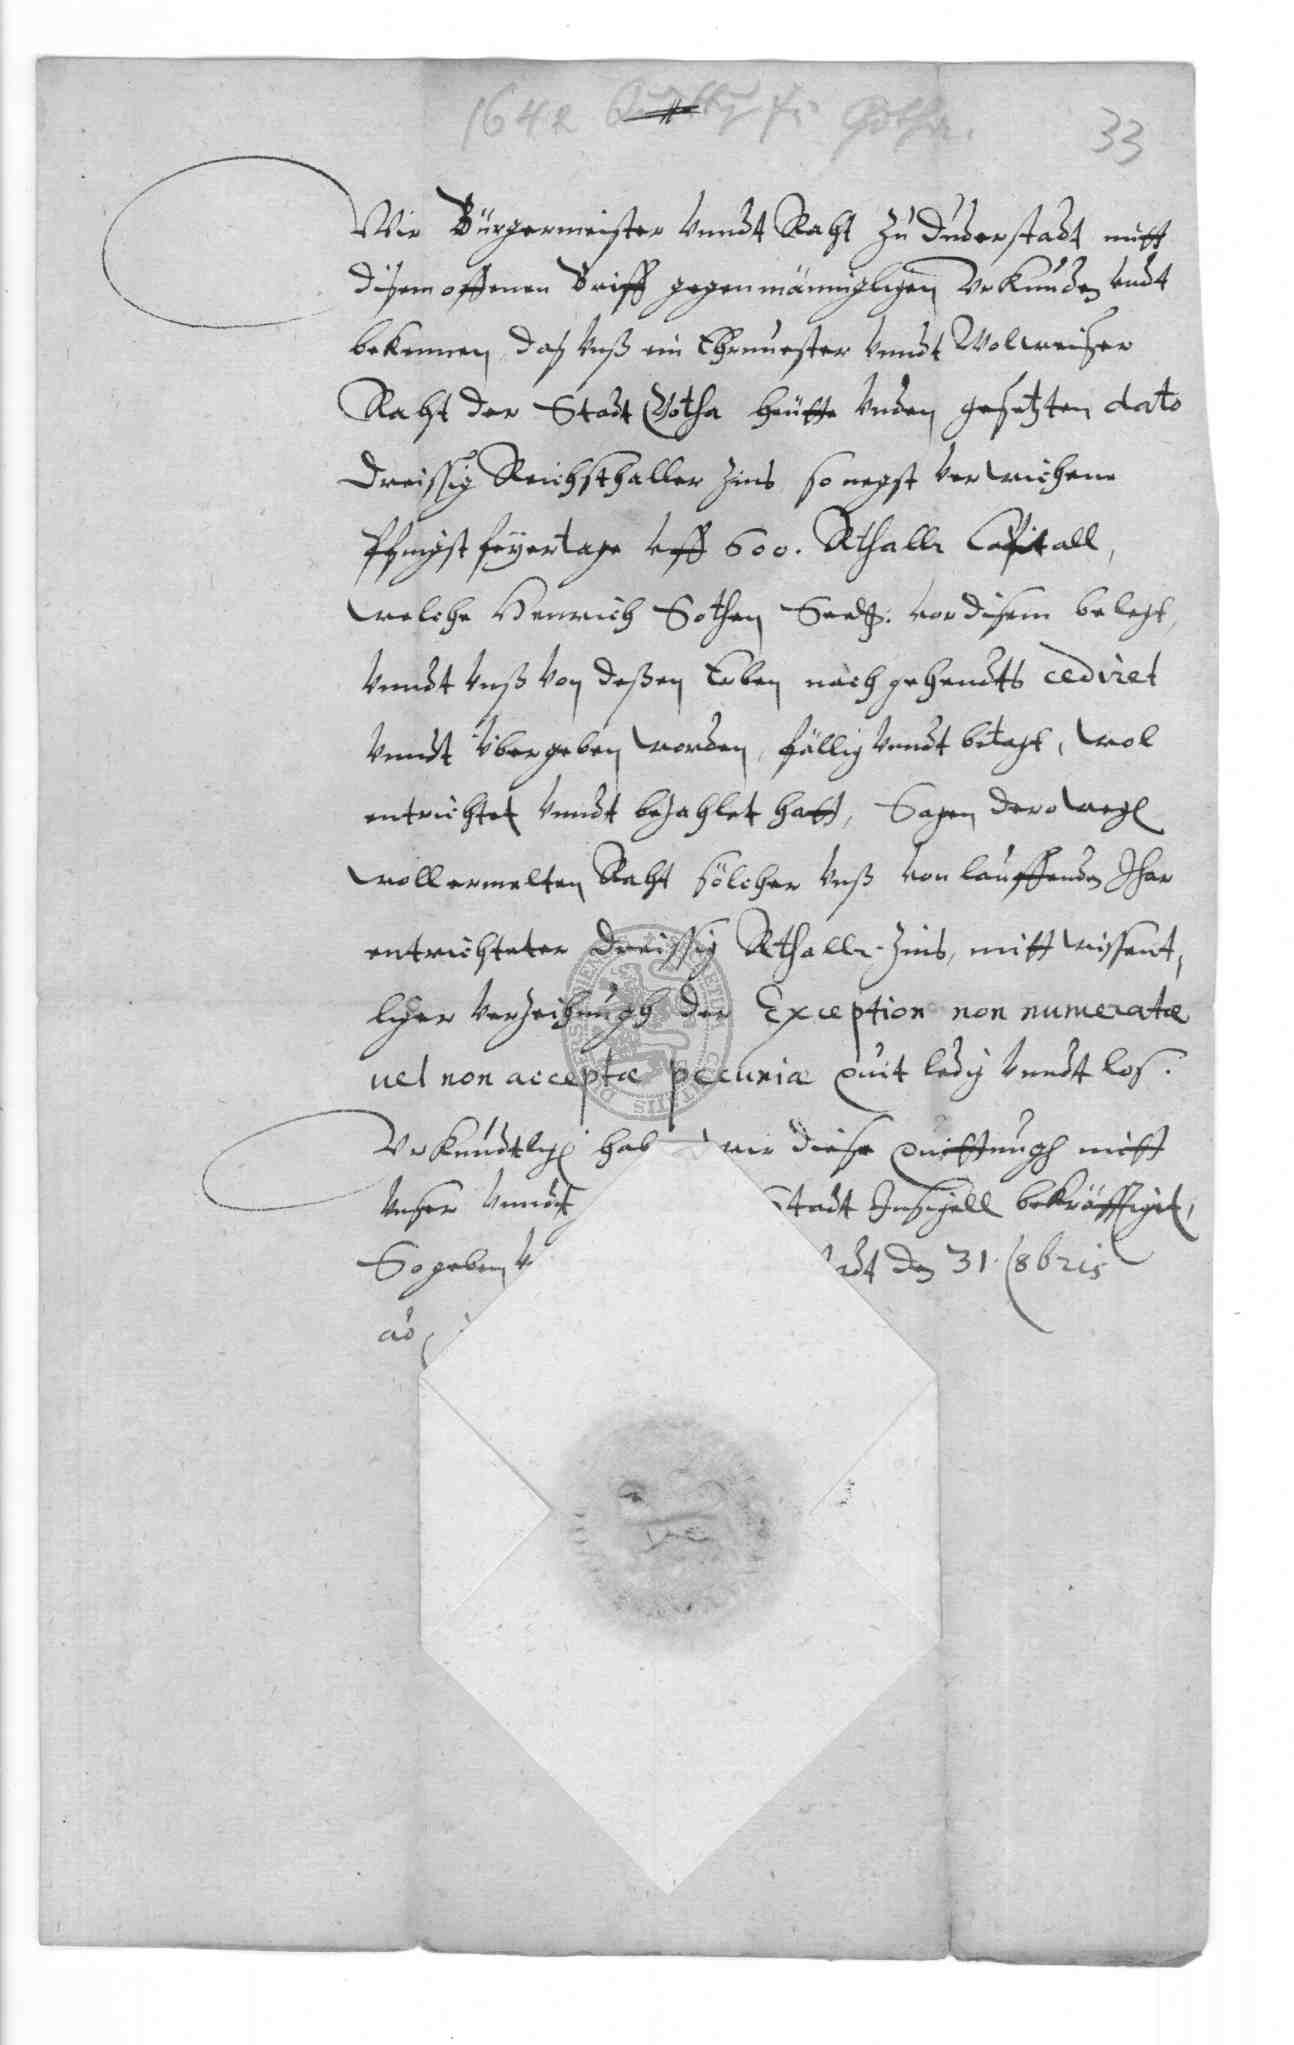 1642 Gotha.
33
Wir Bürgermeister vnndt Raht zu Duderstadt mitt
disem offenen Brieff gegen männiglichen Vrkunden vndt
bekennen, das vnß ein Ehrnuester vnndt Wolweiser
Raht der Stadt Gotha heutte vnden gesetzten dato
Dreissig Reichsthaller Zins so negst verwichene
Pfingstfeyertage vff 600. Rthallr Capitall,
welche Henrich Sothen Seelg: vor disem belegt,
vnndt vnß von deßen Erben nachgehendts cediret
vnndt übergeben worden, fällig vnndt betagt, wol
entrichtet vnndt bezahlet hatt, Sagen derowegen
wollermelten Raht solcher vnß von lauffenden Jhar
entrichteter dreissig Rthallr Zins, mitt wissent,
licher Verzeihungh der Exception non numeratæ
uel non acceptæ pecuniæ quit ledig vnndt los.
Vrkundtlich hab wir diese quittungh mitt
vnser vnndt Stadt Insigell bekräfftiget,
So geben den 31. 8bris
ao